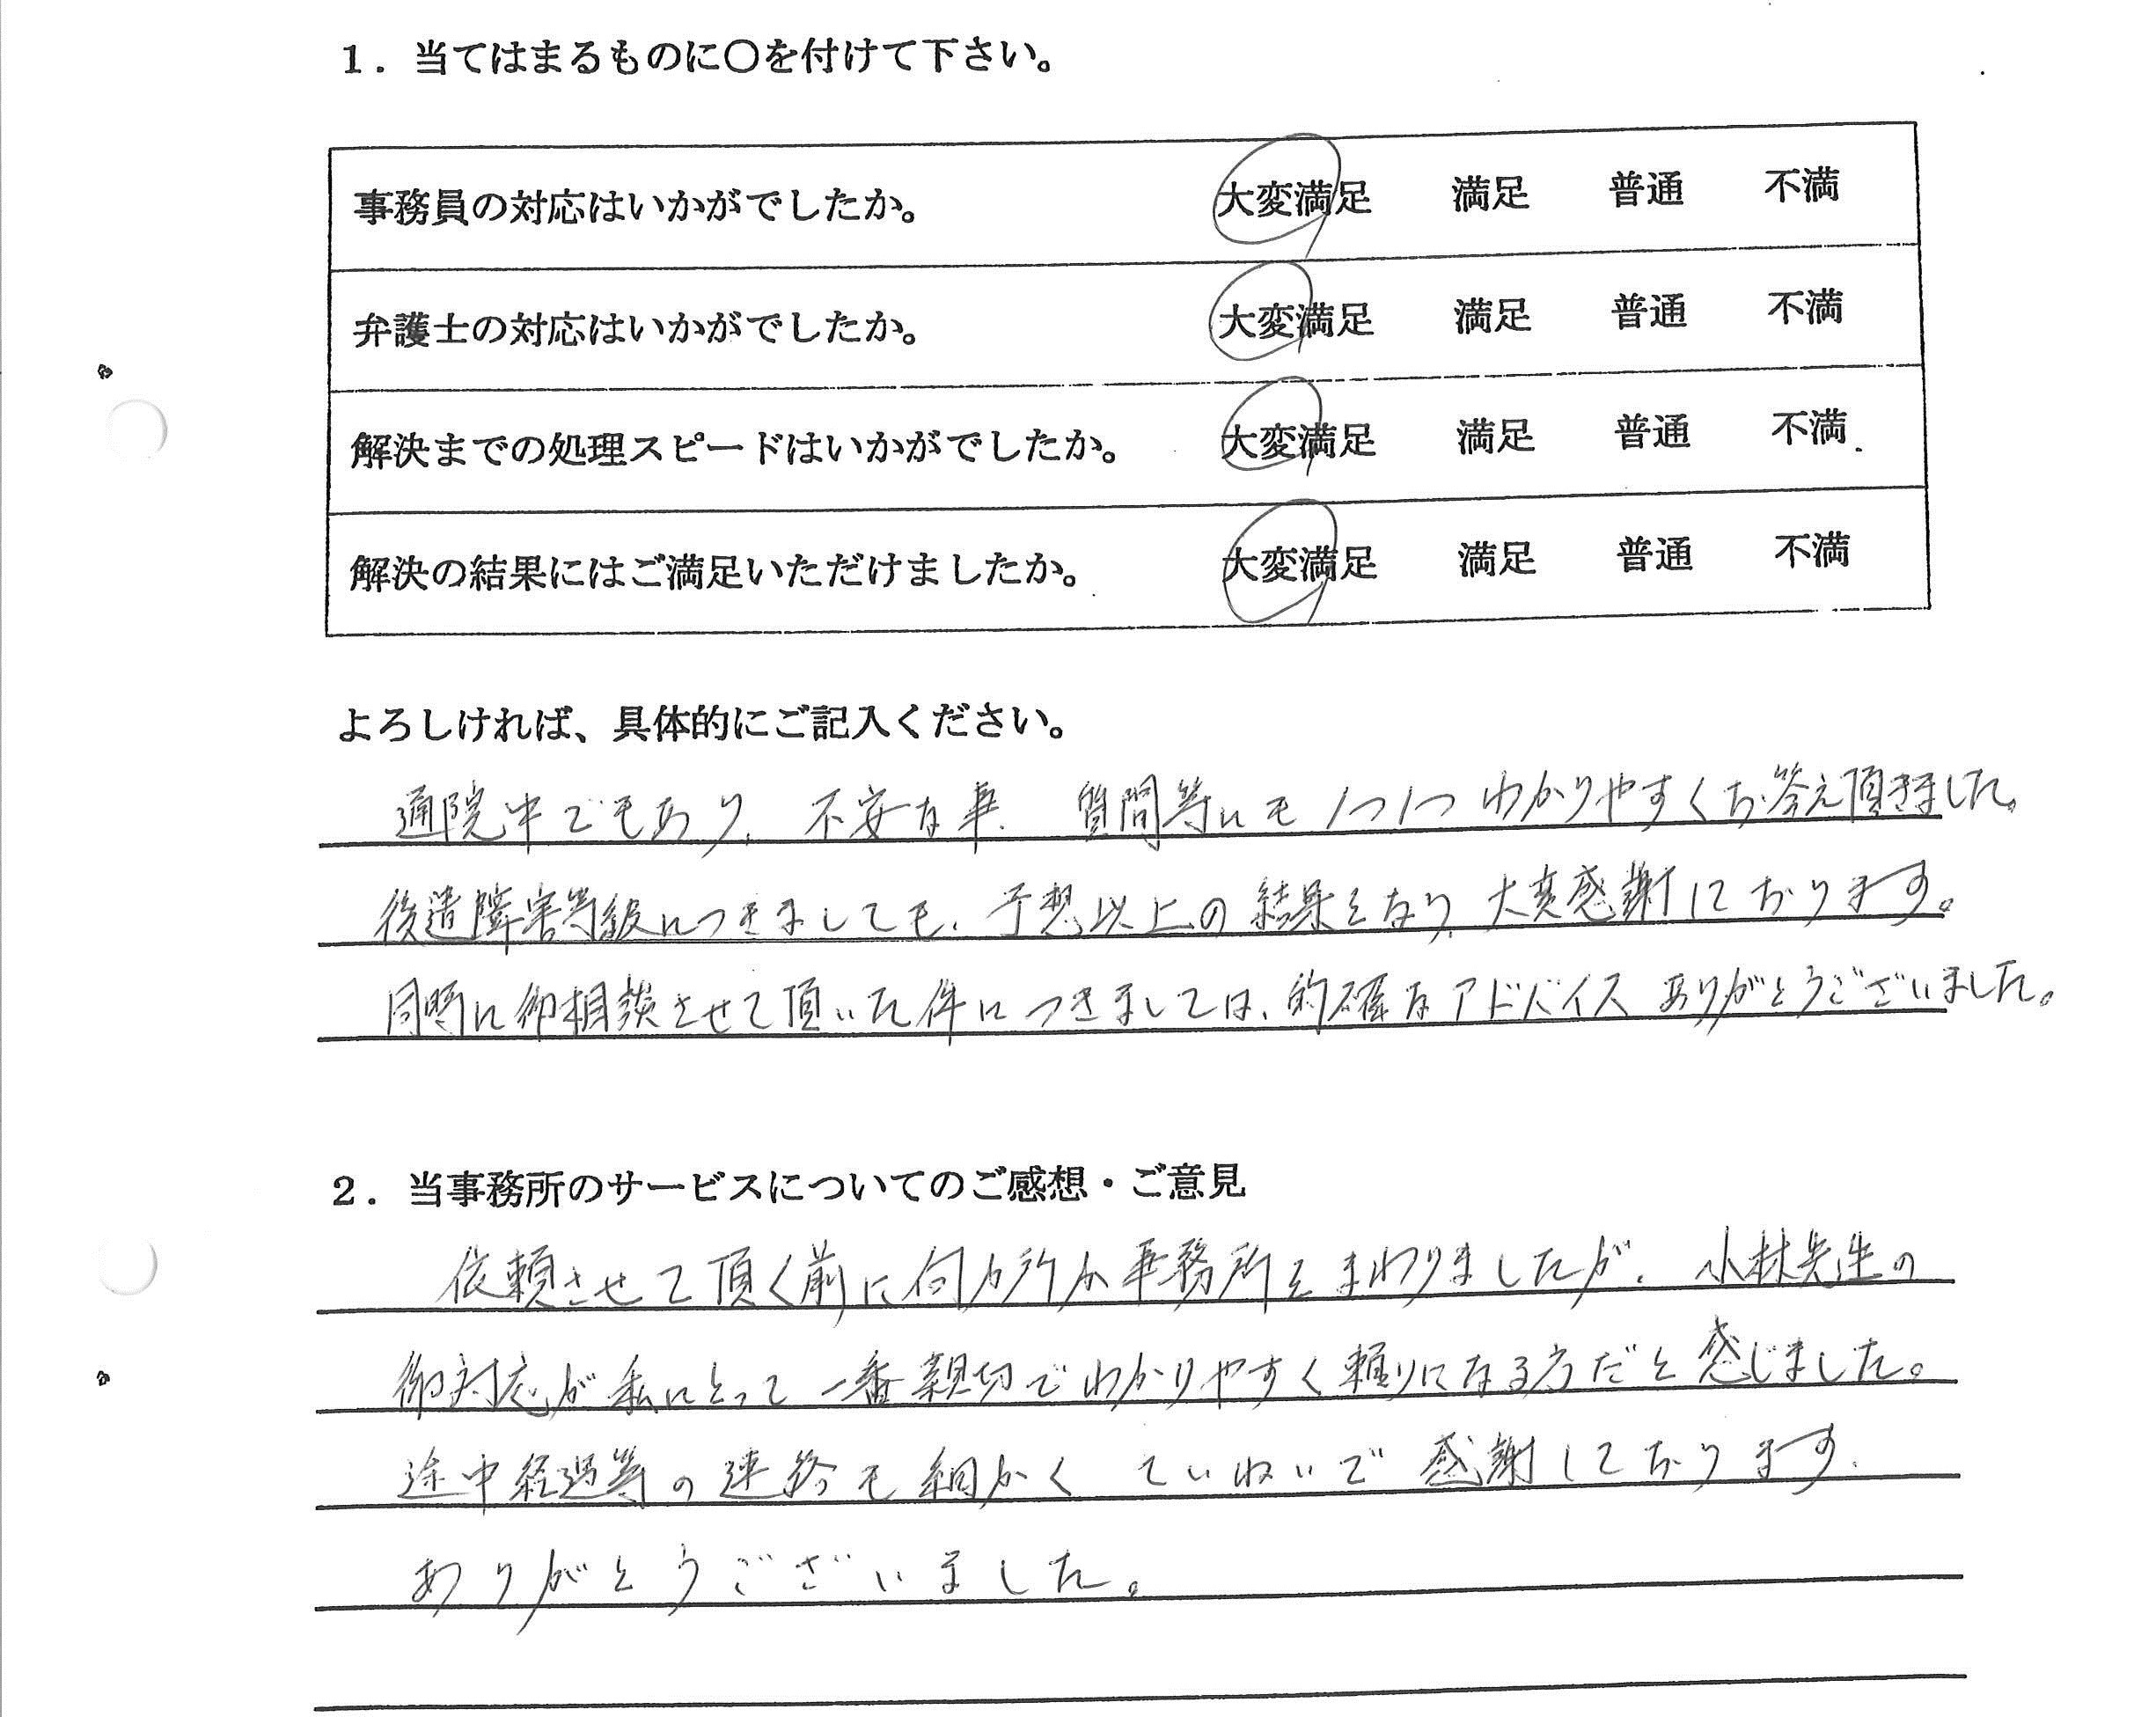 1．当てはまるものに〇を付けて下さい。
事務員の対応はいかがでしたか。 大変満足 満足 普通 不満
弁護士の対応はいかがでしたか。 大変満足 満足 普通 不満
解決までの処理スピードはいかがでしたか。 大変満足 満足 普通 不満
解決の結果にはご満足いただけましたか。 大変満足 満足 普通 不満
よろしければ、具体的にご記入ください。
通院中でもあり、不安な事、質問等にも1つ1つわかりやすくお答え頂きました。
後遺障害等級につきましても、予想以上の結果となり、大変感謝しております。
同時に御相談させて頂いた件につきましては、的確なアドバイスありがとうございました。
2．当事務所のサービスについてのご感想・ご意見
依頼させて頂く前に何カ所か事務所をまわりましたが、小林先生の
御対応が私にとって一番親切でわかりやすく頼りになる方だと感じました。
途中経過等の連絡も細かくていねいで感謝しております。
ありがとうございました。